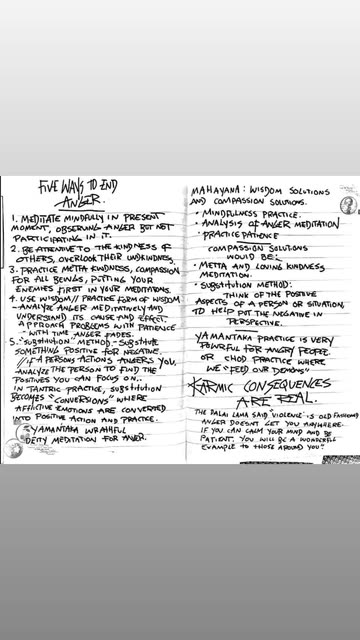 FIVE WAYS TO END
ANGER.
1. MEDITATE MINDFULLY IN PRESENT
MOMENT, OBSERVING ANGER BUT NOT
PARTICIPATING IN IT.
2. BE ATTENTIVE TO THE KINDNESS OF
OTHERS, OVERLOOK THEIR UNKINDNESS.
3. PRACTICE METTA KINDNESS, COMPASSION
FOR ALL BEINGS, PUTTING YOUR
ENEMIES FIRST IN YOUR MEDITATIONS.
4. USE WISDOM // PRACTICE FORM OF WISDOM
- ANALYZE ANGER MEDITATIVELY AND
UNDERSTAND ITS CAUSE AND EFFECT.
APPROACH PROBLEMS WITH PATIENCE
- WITH TIME ANGER FADES.
5. "SUBSTITUTION" METHOD - SUBSTITUTE
SOMETHING POSITIVE FOR NEGATIVE.
// IF A PERSONS ACTIONS ANGERS YOU,
ANALYZE THE PERSON TO FIND THE
POSITIVES YOU CAN FOCUS ON..
IN TANTRIC PRACTICE, SUBSTITUTION
BECOMES "CONVERSIONS" WHERE
AFFLICTIVE EMOTIONS ARE CONVERTED
INTO POSITIVE ACTION AND PRACTICE.
YAMANTAKA WRATHFUL
DEITY MEDITATION FOR ANGER.
MAHAYANA: WISDOM SOLUTIONS
AND COMPASSION SOLUTIONS.
• MINDFULNESS PRACTICE.
• ANALYSIS OF ANGER MEDITATION
• PRACTICE PATIENCE
COMPASSION SOLUTIONS
WOULD BE:
• METTA AND LOVING KINDNESS
MEDITATION.
• SUBSTITUTION METHOD:
THINK OF THE POSITIVE
ASPECTS OF A PERSON OR SITUATION,
TO HELP PUT THE NEGATIVE IN
PERSPECTIVE.
YAMANTAKA PRACTICE IS VERY
POWERFUL FOR ANGRY PEOPLE.
OR CHOD PRACTICE WHERE
WE "FEED OUR DEMONS"
KARMIC CONSEQUENCES
ARE REAL.
THE DALAI LAMA SAID "VIOLENCE" IS OLD FASHIONED
ANGER DOESN'T GET YOU ANYWHERE.
IF YOU CAN CALM YOUR MIND AND BE
PATIENT. YOU WILL BE A WONDERFUL
EXAMPLE TO THOSE AROUND YOU."